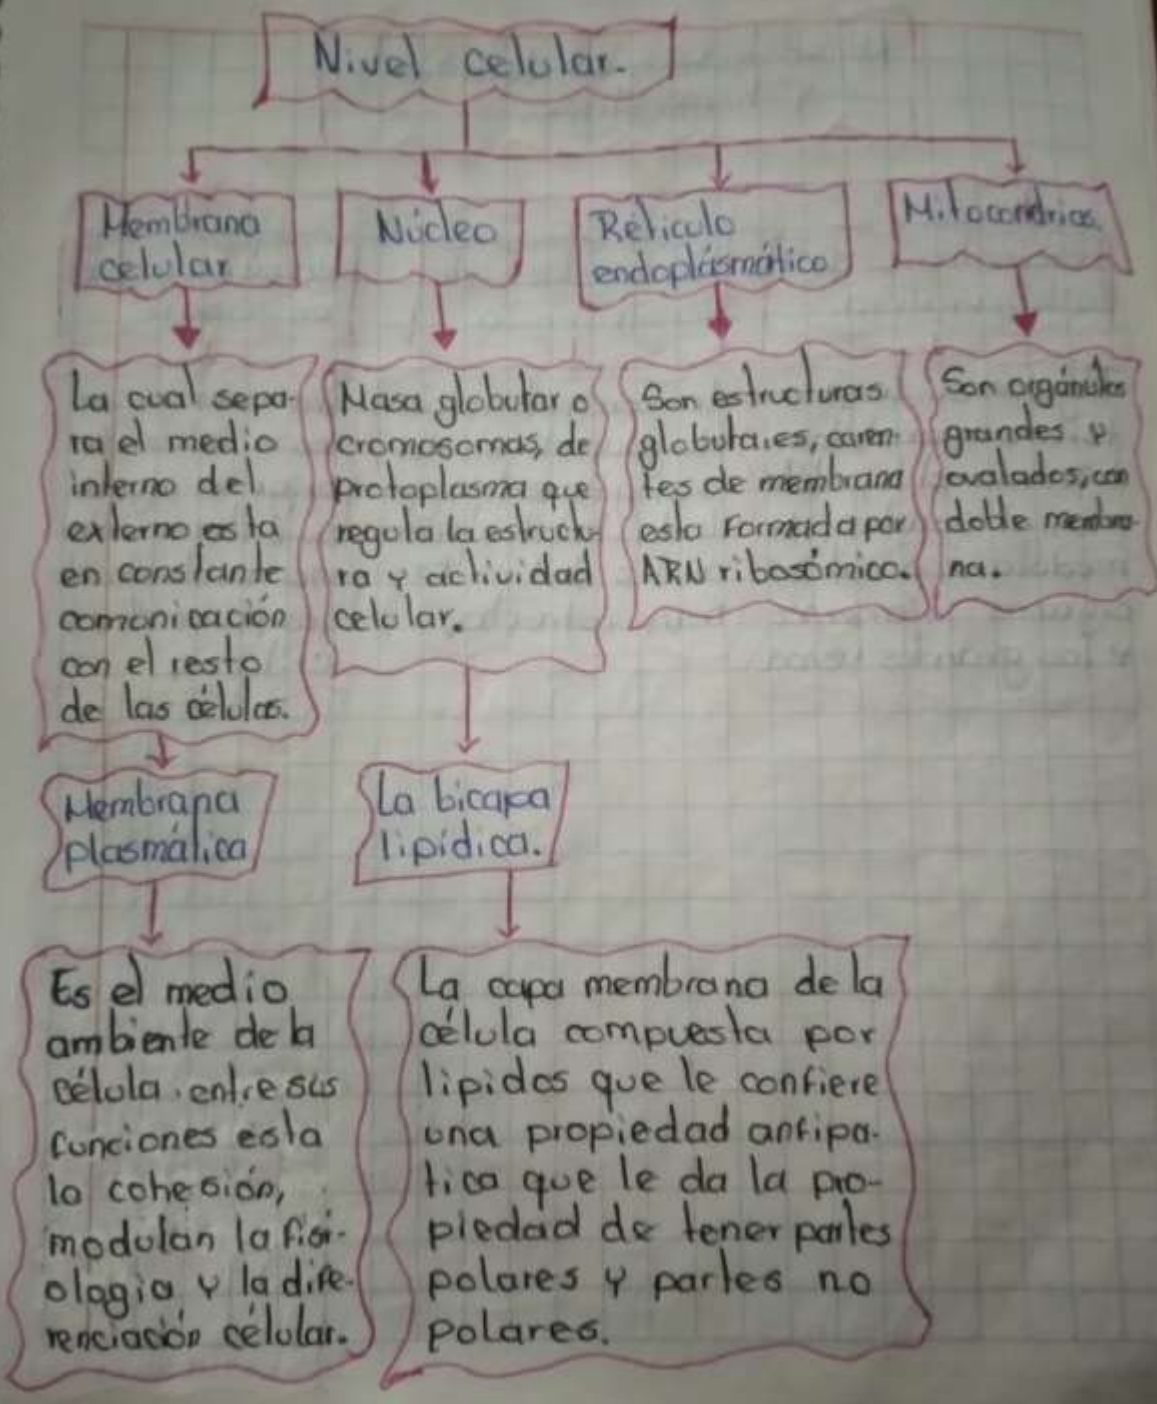 Nivel celular.
Membrana
celular
Núcleo
Réticulo
endoplásmático
Mitocondrias
La cual sepa-
ra el medio
interno del
externo esta
en constante
comunicación
con el resto
de las células.
Masa globular o
cromosomas, de
protoplasma que
regula la estructu
ra y actividad
celular.
Son estructuras
globulares, caren-
tes de membrana
esta formada por
ARN ribosómico.
Son orgánulos
grandes y
ovalados, con
doble membra-
na.
Membrana
plasmática
La bicapa
lipídica.
Es el medio
ambiente de la
célula. entre sus
funciones esta
la cohesión,
modulan la fisi-
ologia y la dife-
renciación célular.
La capa membrana de la
célula compuesta por
lipidos que le confiere
una propiedad anfipa-
tica que le da la pro-
piedad de tener partes
polares y partes no
polares.